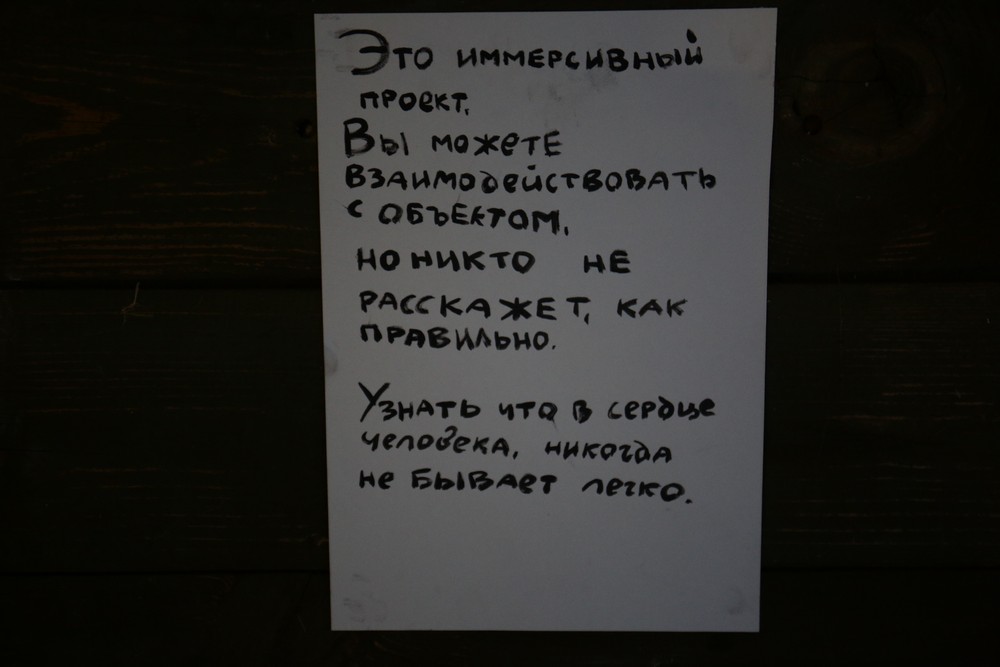 Это иммерсивный
проект.
Вы можете
взаимодействовать
с объектом,
но никто не
расскажет, как
правильно.
Узнать что в сердце
человека, никогда
не бывает легко.